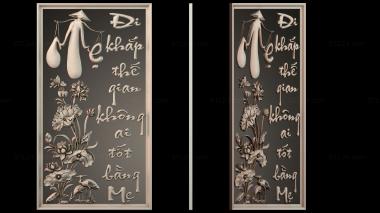 Đi
khắp
thế
gian
không
ai
tốt
bằng
Mẹ
Mẹ
Đi
khắp
thế
gian
không
ai
tốt
bằng
Mẹ